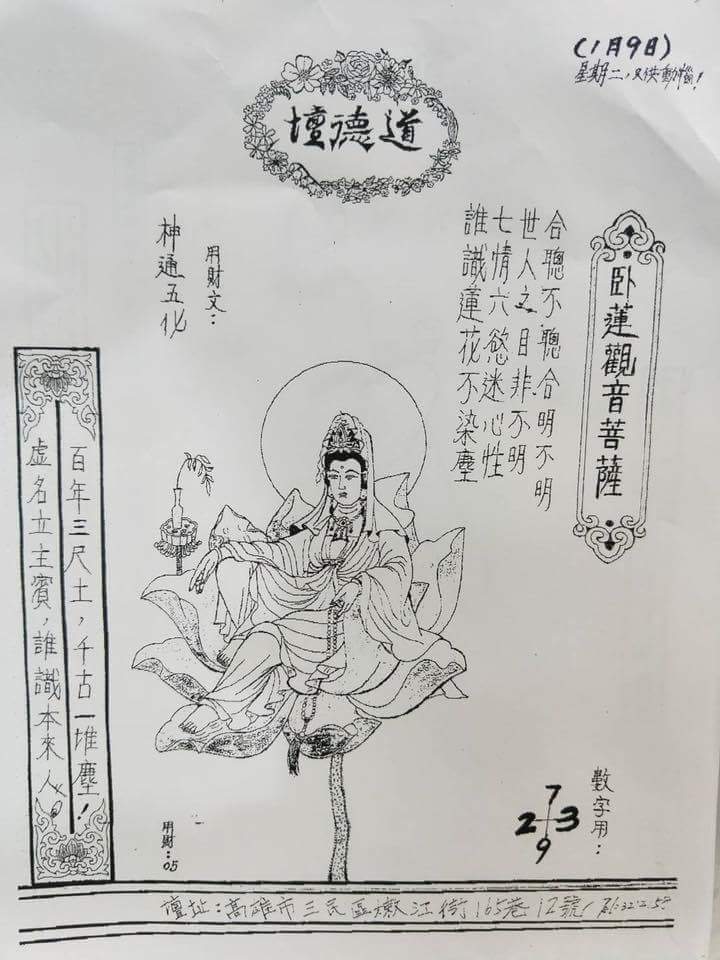 (1月9日)
星期二，只供動腦！
道德壇
卧蓮觀音菩薩
合聰不聰合明不明
世人之目非不明
七情六慾迷心性
誰識蓮花不染塵
用財文：
神通五化
百年三尺土，千古一堆塵！
虛名立主賓，誰識本來人
數字用：
7
2 3
9
用財：05
壇址：高雄市三民區嫩江街165巷12號